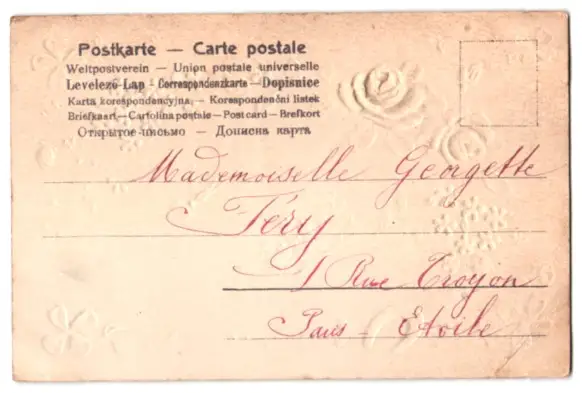 Postkarte — Carte postale
Weltpostverein — Union postale universelle
Levelező-Lap — Correspondenzkarte — Dopisnice
Karta korespondencyjna — Korespondenční lístek
Briefkaart — Cartolina postale — Post card — Brefkort
Открытое письмо — Дописна карта
Mademoiselle Georgette
Féry
1 Rue Troyon
Paris - Etoile